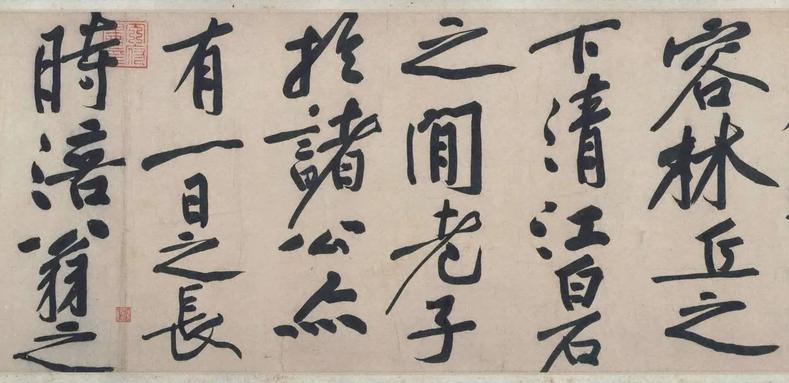 容林丘之
下清江白石
之間老子
於諸公亦
有一日之長
時涪翁之